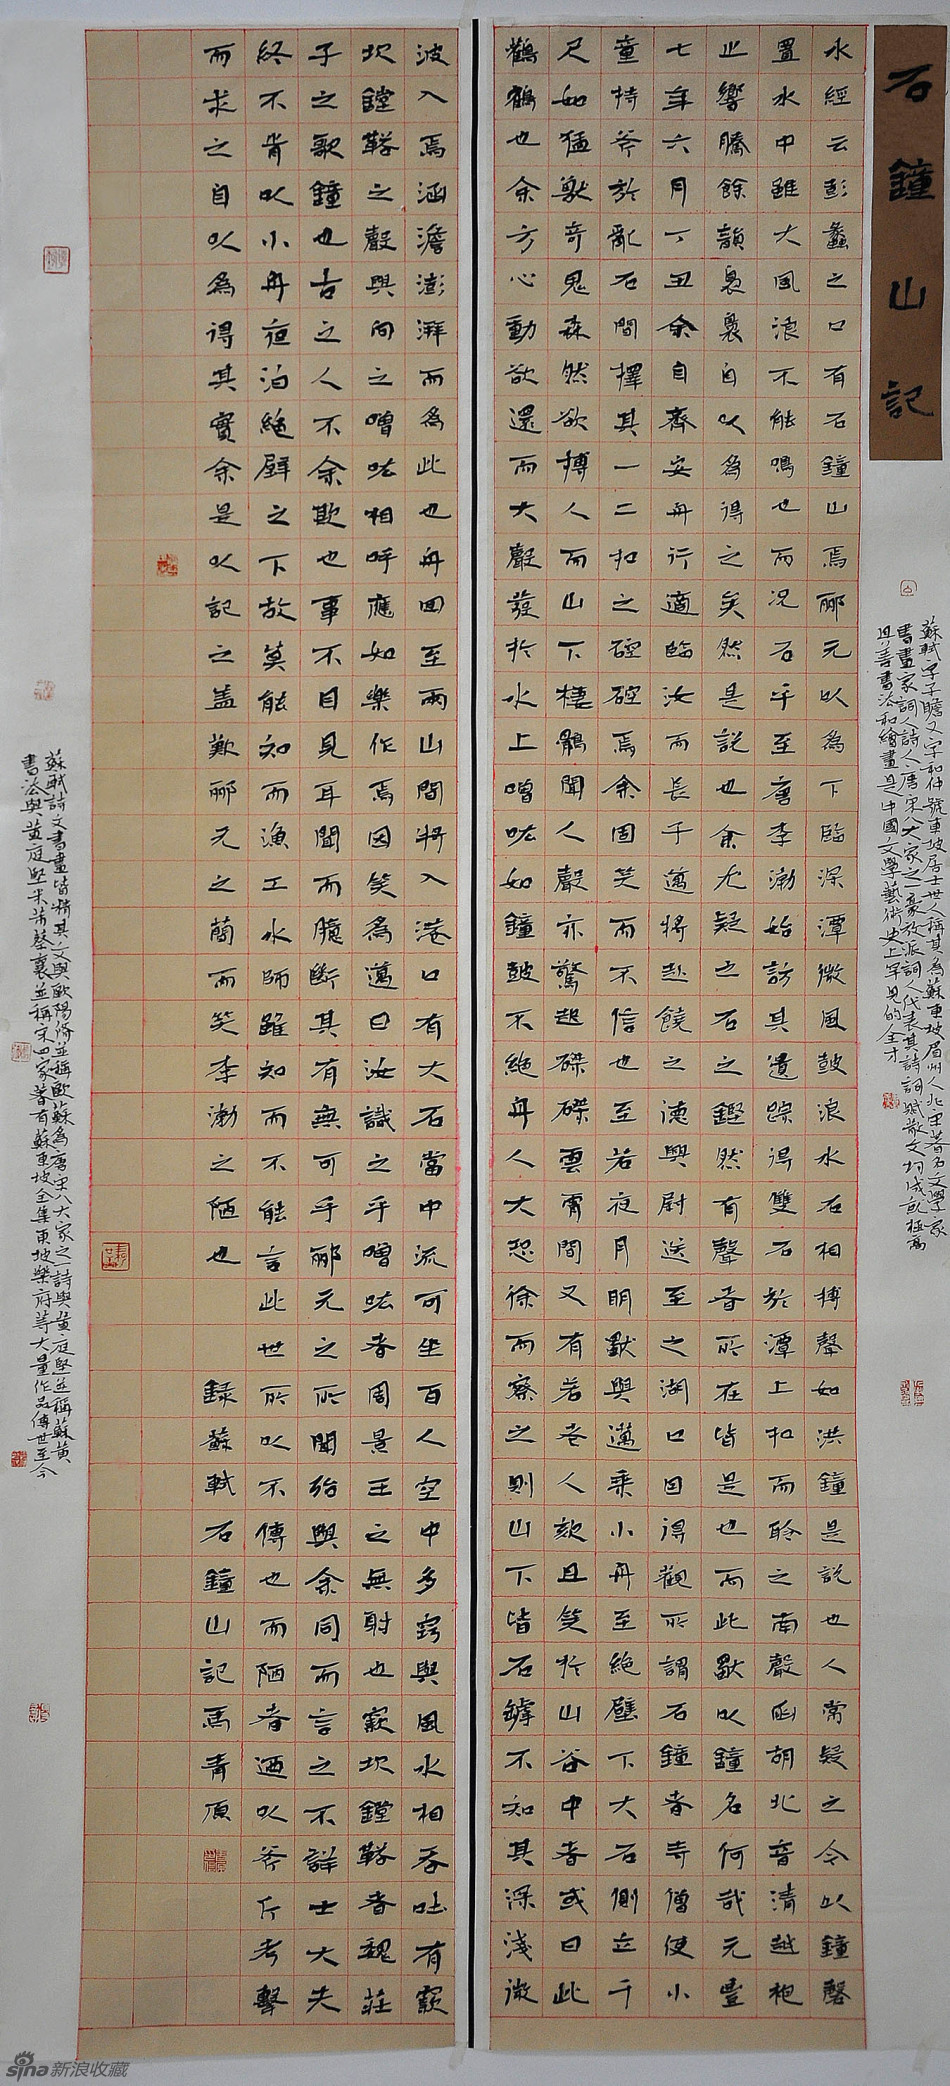 石鐘山記
水經云彭蠡之口有石鐘山焉酈元以為下臨深潭微風鼓浪水石相搏聲如洪鐘是說也人常疑之今以鐘磬
置水中雖大風浪不能鳴也而況石乎至唐李渤始訪其遺踪得雙石於潭上扣而聆之南聲函胡北音清越枹
止響騰餘韻裊裊自以為得之矣然是說也余尤疑之石之鏗然有聲者所在皆是也而此獨以鐘名何哉元豐
七年六月丁丑余自齊安舟行適臨汝而長子邁將赴饒之德興尉送至之湖口因得觀所謂石鐘者寺僧使小
童持斧於亂石間擇其一二扣之硿硿焉余固笑而不信也至若夜月明獨與邁乘小舟至絕壁下大石側立千
尺如猛獸奇鬼森然欲搏人而山下棲鶻聞人聲亦驚起磔磔雲霄間又有若老人欬且笑於山谷中者或曰此
鸛鶴也余方心動欲還而大聲發於水上噌吰如鐘鼓不絕舟人大恐徐而察之則山下皆石罅不知其深淺微
波入焉涵澹澎湃而為此也舟回至兩山間將入港口有大石當中流可坐百人空中多竅與風水相吞吐有窾
坎鏜鞳之聲與向之噌吰相呼應如樂作焉因笑為邁曰汝識之乎噌吰者周景王之無射也窾坎鏜鞳者魏莊
子之歌鐘也古之人不余欺也事不目見耳聞而臆斷其有無可乎酈元之所聞殆與余同而言之不詳士大夫
終不肯以小舟夜泊絕壁之下故莫能知而漁工水師雖知而不能言此世所以不傳也而陋者迺以斧斤考擊
而求之自以為得其實余是以記之蓋歎酈元之簡而笑李渤之陋也 錄蘇軾石鐘山記馬青原
蘇軾字子瞻又字和仲號東坡居士世人稱其為蘇東坡眉州人北宋著名文學家
書畫家詞人詩人唐宋八大家之一豪放派詞人代表其詩詞賦散文均成就極高
且善書法和繪畫是中國文學藝術史上罕見的全才
蘇軾詩文書畫皆精其文與歐陽脩並稱歐蘇為唐宋八大家之一詩與黃庭堅並稱蘇黃
書法與黃庭堅米芾蔡襄並稱宋四家著有蘇東坡全集東坡樂府等大量作品傳世至今
sina新浪收藏